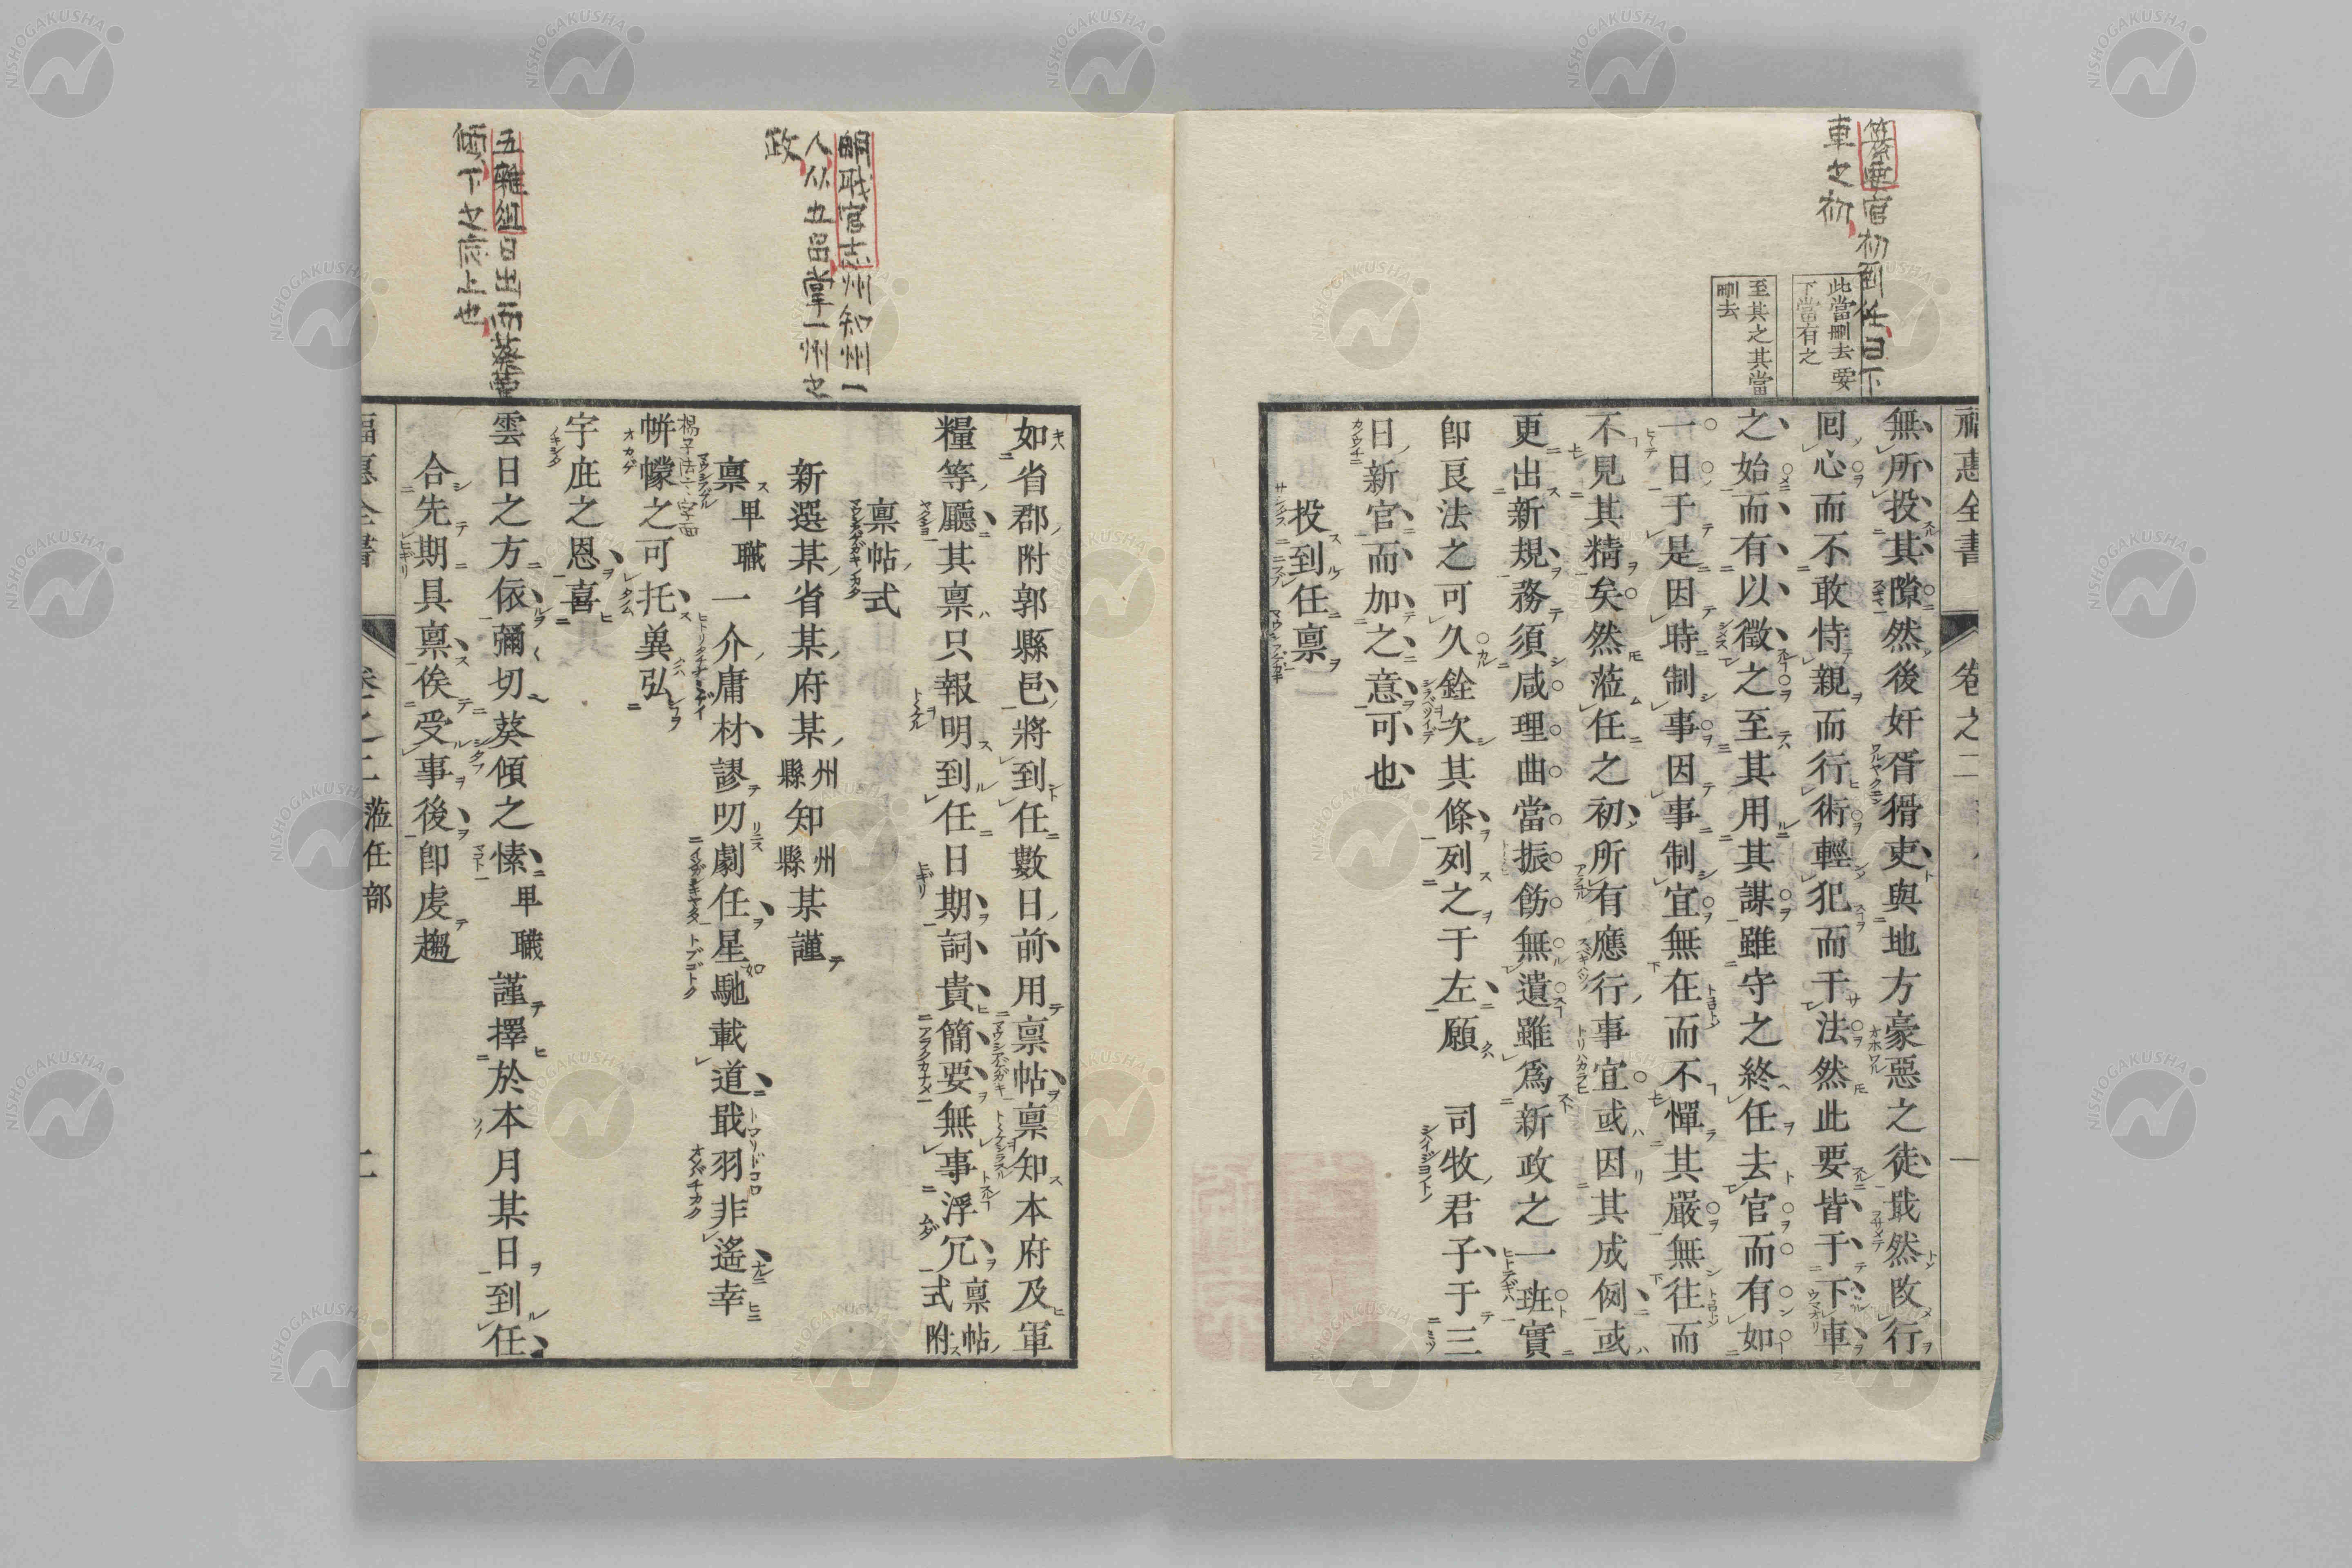 纂要官初到任曰下
車之初
此當刪去要
下當有之
至其之其當
刪去
福惠全書
卷之二
一
無所投其隙然後奸胥猾吏與地方豪惡之徒戢然改行
回心而不敢恃親而行術輕犯而干法然此要皆于下車
之始而有以徵之至其用其謀雖守之終任去官而有如
一日于是因時制事因事制宜無在而不憚其嚴無往而
不見其精矣然蒞任之初所有應行事宜或因其成例或
更出新規務須咸理曲當振飭無遺雖爲新政之一班實
卽良法之可久銓次其條列之于左願　司牧君子于三
日新官而加之意可也
投到任禀
明職官志州知州一
人从五品掌一州之
政
五雜俎曰出而葵藿
傾下之床上也
如省郡附郭縣邑將到任數日前用禀帖禀知本府及軍
糧等廳其禀只報明到任日期詞貴簡要無事浮冗禀帖
式附
禀帖式
新選某省某府某州縣知州縣某謹
禀卑職一介庸材謬叨劇任星馳載道戢羽非遙幸
楊子法言字面
帡幪之可托冀弘
宇庇之恩喜
雲日之方依彌切葵傾之愫卑職謹擇於本月某日到任
合先期具禀俟受事後卽虔趨
福惠全書
卷之二
蒞任部
二
NISHOGAKUSHA